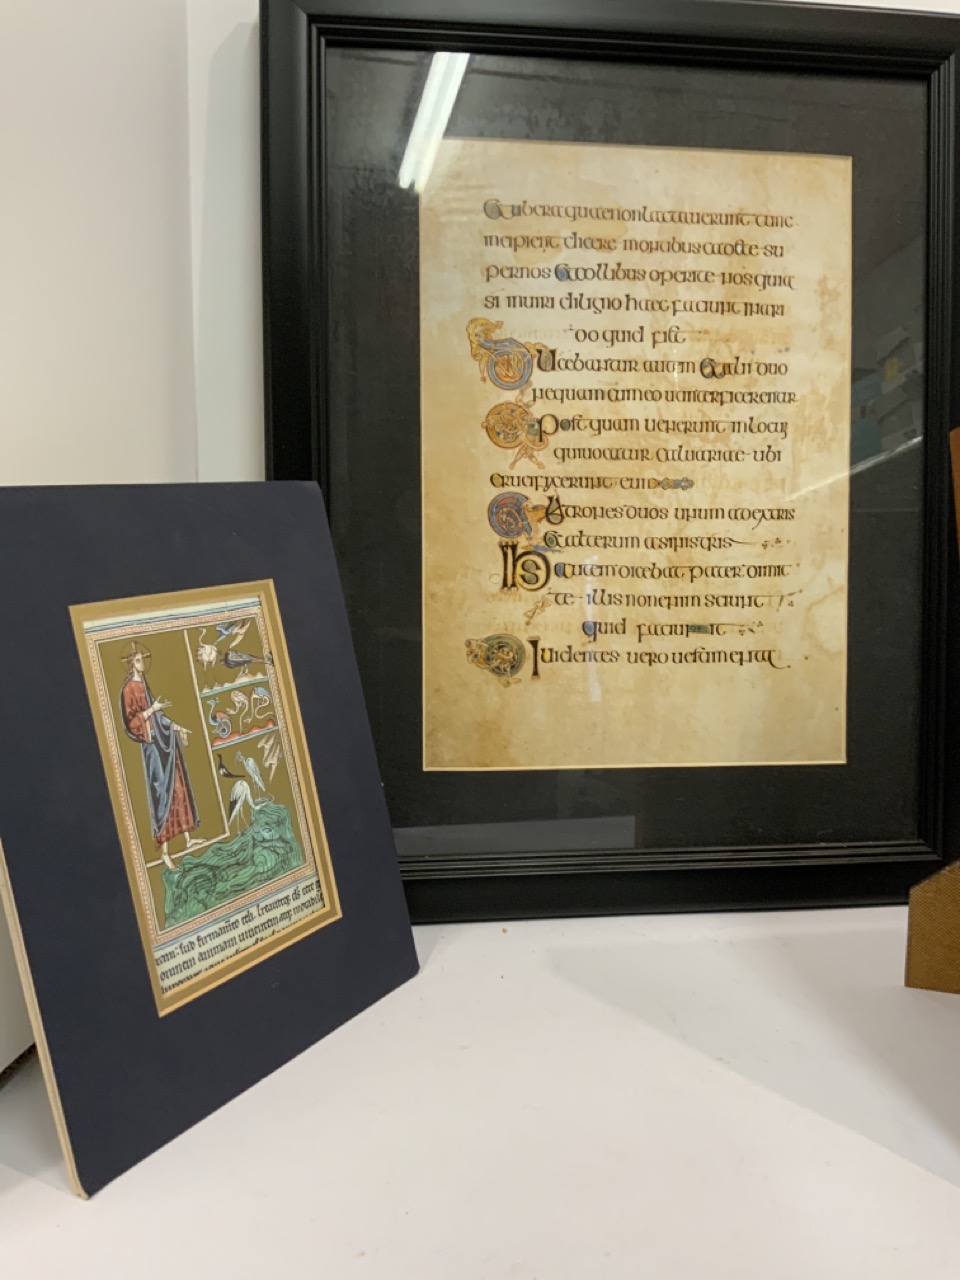 Et ubera quae non lactauerunt tunc
incipient dicere montibus cadite su
per nos et collibus operite nos quia
si in uiridi ligno haec faciunt in ari
do quid fiet
Ducebantur autem et alii duo
nequam cum eo ut interficerentur
Post quam uenerunt in locum
qui uocatur caluariae ubi
crucifixerunt eum
Latrones duos unum a dextris
et alterum a sinistris
Ihs autem dicebat pater dimit
te illis non enim sciunt
quid faciunt
Diuidentes uero uestimenta
ram: sub firmamto celi. Creauitq; ds cete g
omnem animam uiuentem atq;